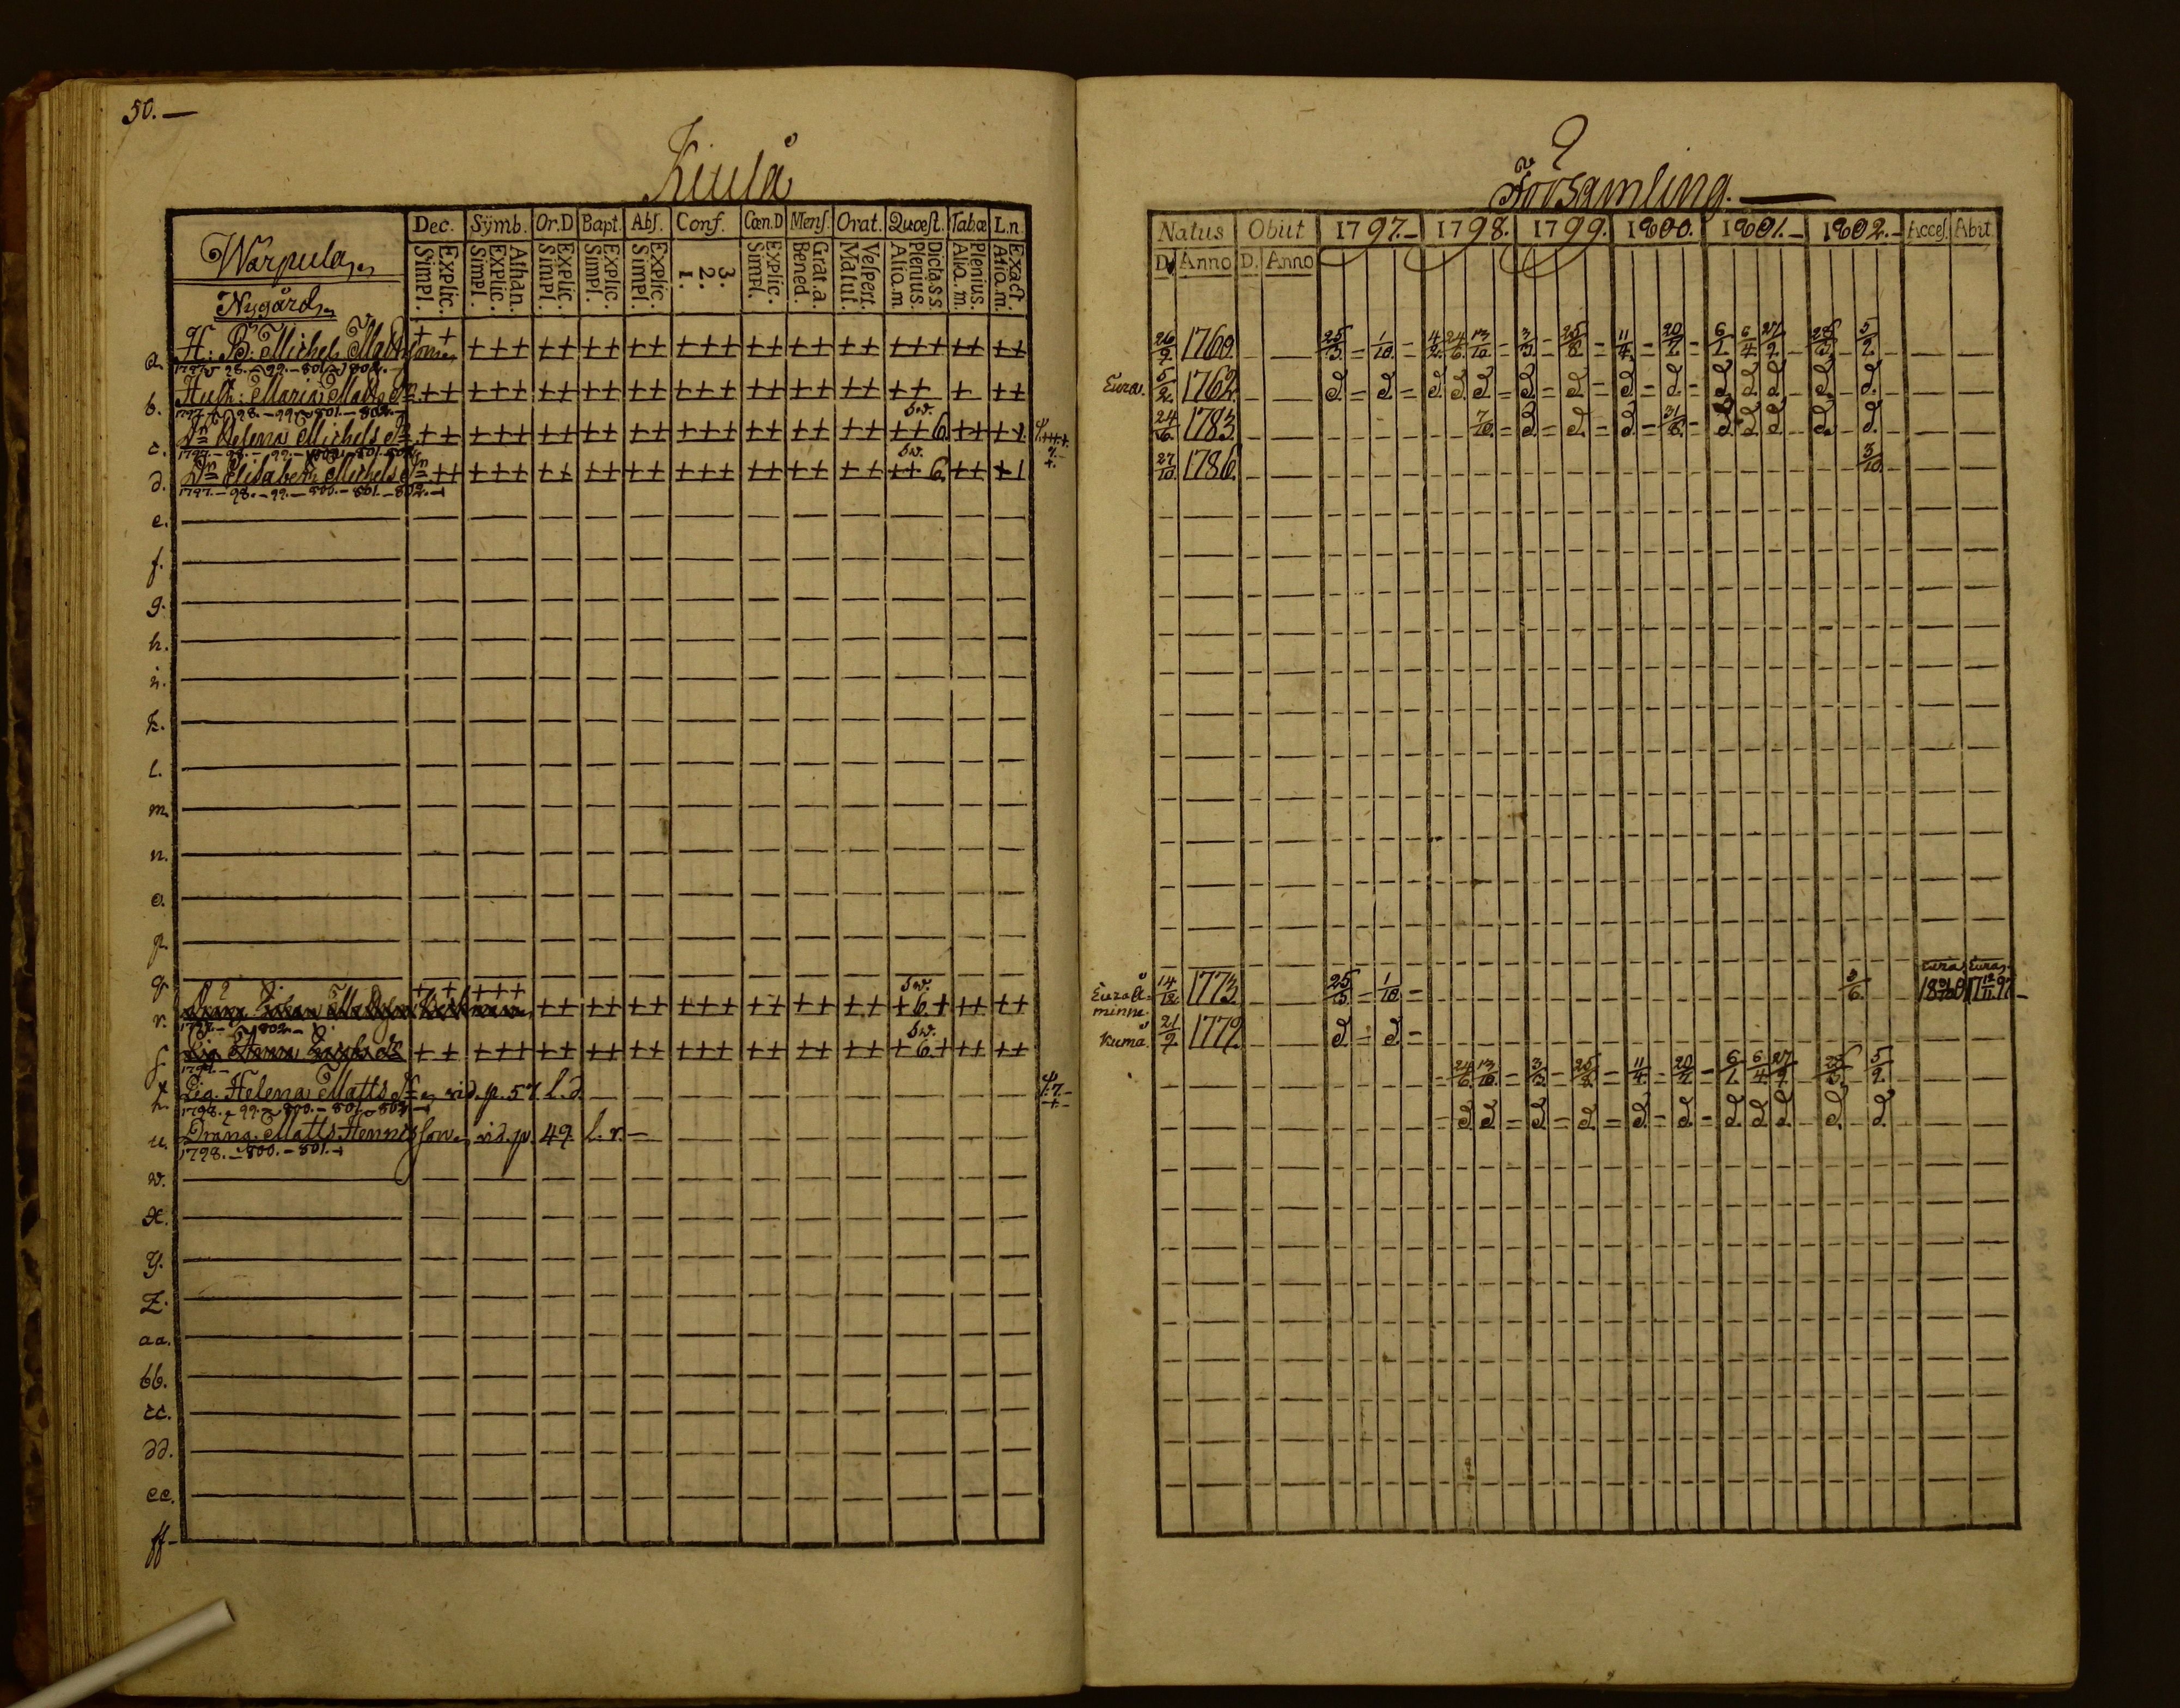 50.—
Kiulå
Församling.—
Wärpula
Nygård
Dec. Sÿmb. Or.D Bapt. Abſ. Conf. Cœn.D Menſ. Orat. Quœſt. Tab.œ L.n.
Simpl. Explic. Simpl. Explic. Athan. Simpl. Explic. Simpl. Explic. Simpl. Explic. 1. 2. 3. Simpl. Explic. Bened. Grat.a. Matut. Veſpert. Aliq.m Plenius. Dicta.s.s. Aliq.m. Plenius. Aliq.m. Exact.
Natus Obiit 1797.– 1798. 1799. 1800. 1801.– 1802.– Acceſ. Abit.
D. Anno D. Anno
a. H: B: Michel Mattsson + + +++ ++ ++ ++ +++ ++ ++ ++ +++ ++ ++ 26/9. 1760. 25/3. 1/10. 4/2. 24/6. 13/10. 3/3. 25/8. 11/4. 20/7. 6/1. 6/4. 27/9. 28/3. 5/9.
1797. 98.–99.–801. 802.–
b. Hust: Maria Matts dr ++ +++ ++ ++ ++ +++ ++ ++ ++ ++ + ++ Eura. 5/2. 1762. d. d. d. d. d. d. d. d. d. d. d. d. d. d.
1797. 98.–99. 801.–802.–
c. Dr Helena Michels dr ++ +++ ++ ++ ++ +++ ++ ++ ++ ++6. ++ ++ 24/6. 1783. 7/10. d. d. d. 31/8. d. d. d. d. d.
sw.
1797.–98.–99.–
d. Dr Elisabet Michels dr ++ +++ ++ ++ ++ +++ ++ ++ ++ ++6. ++ +1 27/10. 1786. 3/10.
sw.
1797.–98.–99.–800.–801.–802.–
e.
f.
g.
h.
i.
k.
l.
m.
n.
o.
p.
q.
r. Dräng Johan ++ +++ ++ ++ ++ +++ ++ ++ ++ +6+ ++ ++ 14/12. 1773. 25/3. 1/10. 2/6.
sw.
Euraå
minne.
1797.– 802.–
s. Pig. Anna ++ +++ ++ ++ ++ +++ ++ ++ ++ +6+ ++ ++ Kumå 21/9. 1779. d. d.
sw.
1797.–
t. Pig. Helena Matts dr vid. p. 57. l. d. 24/6. 13/10. 3/3. 25/8. 11/4. 20/7. 6/1. 6/4. 27/9. 28/3. 5/9.
1798. 99. 800.–801. 802.–
u. Dräng. Matts Hennigsson vid. p. 49. l. r.– d. d. d. d. d. d. d. d. d. d. d.
1798.–800.–801.–
w.
x.
y.
z.
aa.
bb.
cc.
dd.
ee.
ff–